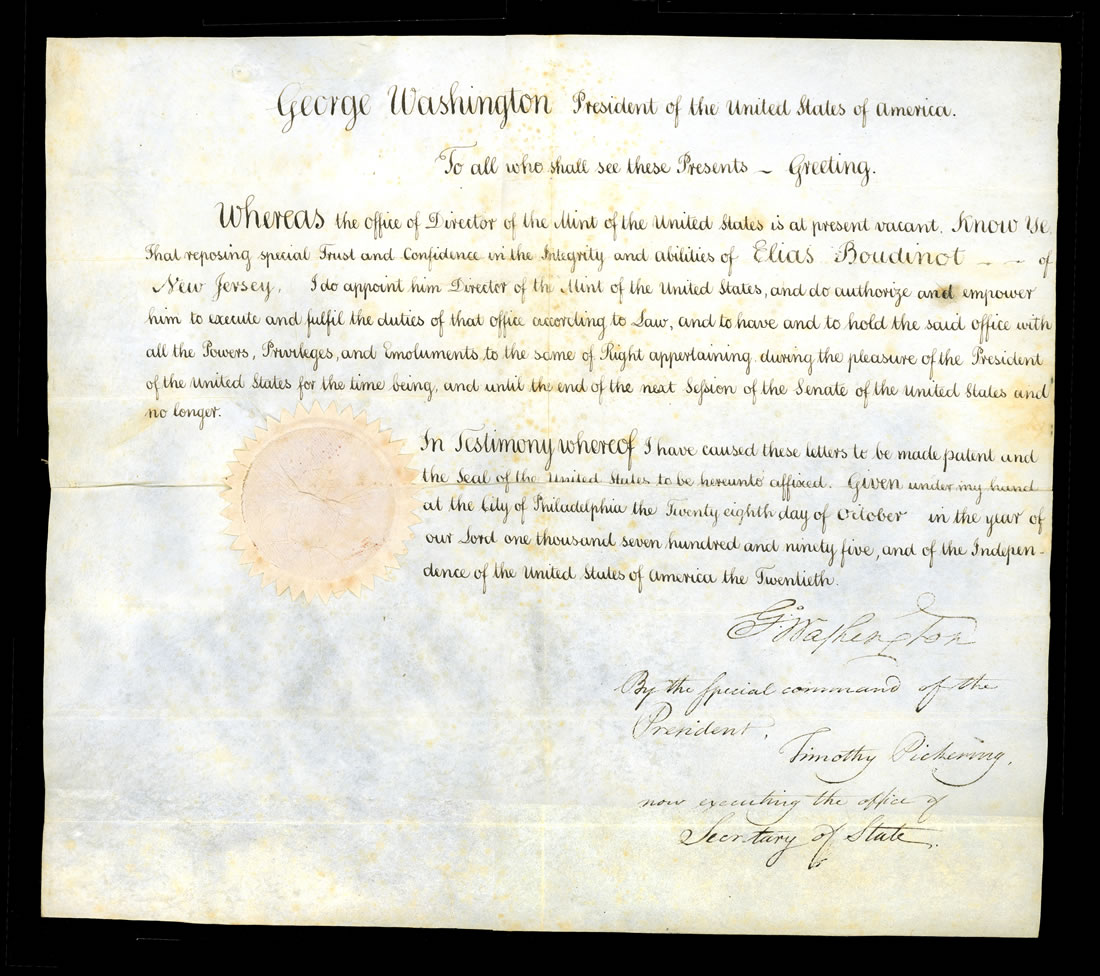 George Washington President of the United States of America.
To all who shall see these Presents – Greeting.
Whereas the Office of Director of the Mint of the United States is at present vacant. Know Ye,
That reposing special Trust and Confidence in the Integrity and abilities of Elias Boudinot – – of
New Jersey, I do appoint him Director of the Mint of the United States, and do authorize and empower
him to execute and fulfil the duties of that office according to Law, and to have and to hold the said office with
all the Powers, Privileges, and Emoluments to the same of Right appertaining during the pleasure of the President
of the United States for the time being, and until the end of the next Session of the Senate of the United States and
no longer.
In Testimony whereof I have caused these letters to be made patent and
the Seal of the United States to be hereunto affixed. Given under my hand
at the City of Philadelphia the Twenty eighth day of October in the year of
our Lord one thousand seven hundred and ninety five, and of the Indepen-
dence of the United States of America the Twentieth.
Go. Washington
By the special command of the
President,
Timothy Pickering,
now executing the office of
Secretary of State.